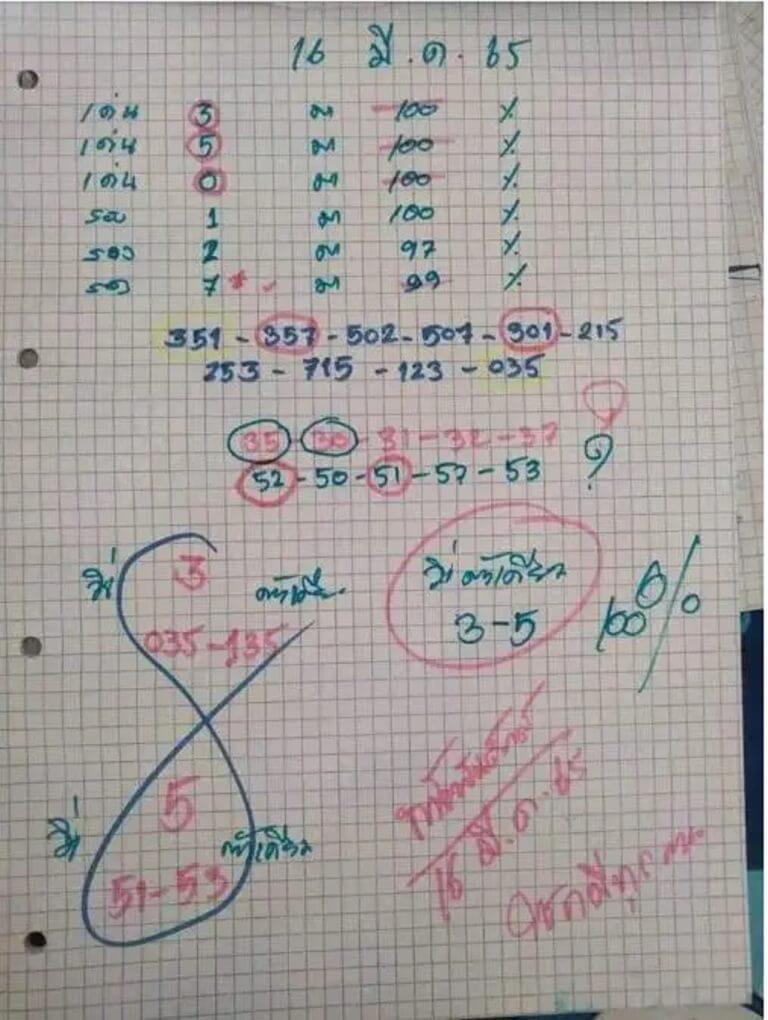 16 มี.ค. 65
เด่น 3 มา 100 %
เด่น 5 มา 100 %
เด่น 0 มา 100 %
รอง 1 มา 100 %
รอง 2 มา 97 %
รอง 7 มา 99 %
351 - 357 - 502 - 507 - 301 - 215
253 - 715 - 123 - 035
35 - 30 - 31 - 32 - 37 ?
52 - 50 - 51 - 57 - 53
3
035 - 135
3 - 5
100 %
5
ตัวเดียว
51 - 53
16 มี.ค. 65
โชคดีทุก